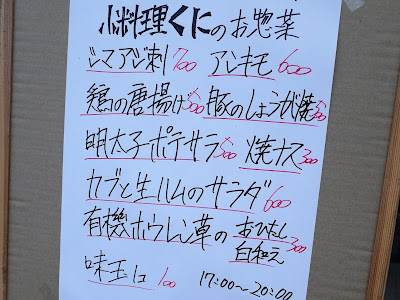 小料理くにのお惣菜
シマアジ刺 700 アンキモ 600
鶏の唐揚げ500 豚のしょうが焼500
明太子ポテサラ500 焼ナス300
カブと生ハムのサラダ600
有機ホウレン草の おひたし 300
白和え
味玉1コ 100 17:00~20:00